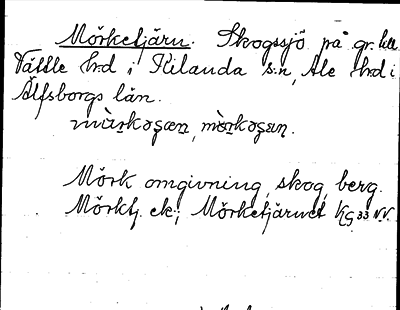 Mörketjärn. Skogssjö på gr. till
Vättle hrd i Kilanda sn, Ale hrd i
Älfsborgs län.
Mörk omgivning, skog, berg.
Mörktj. ek; Mörketjärnet KG 33 NV.